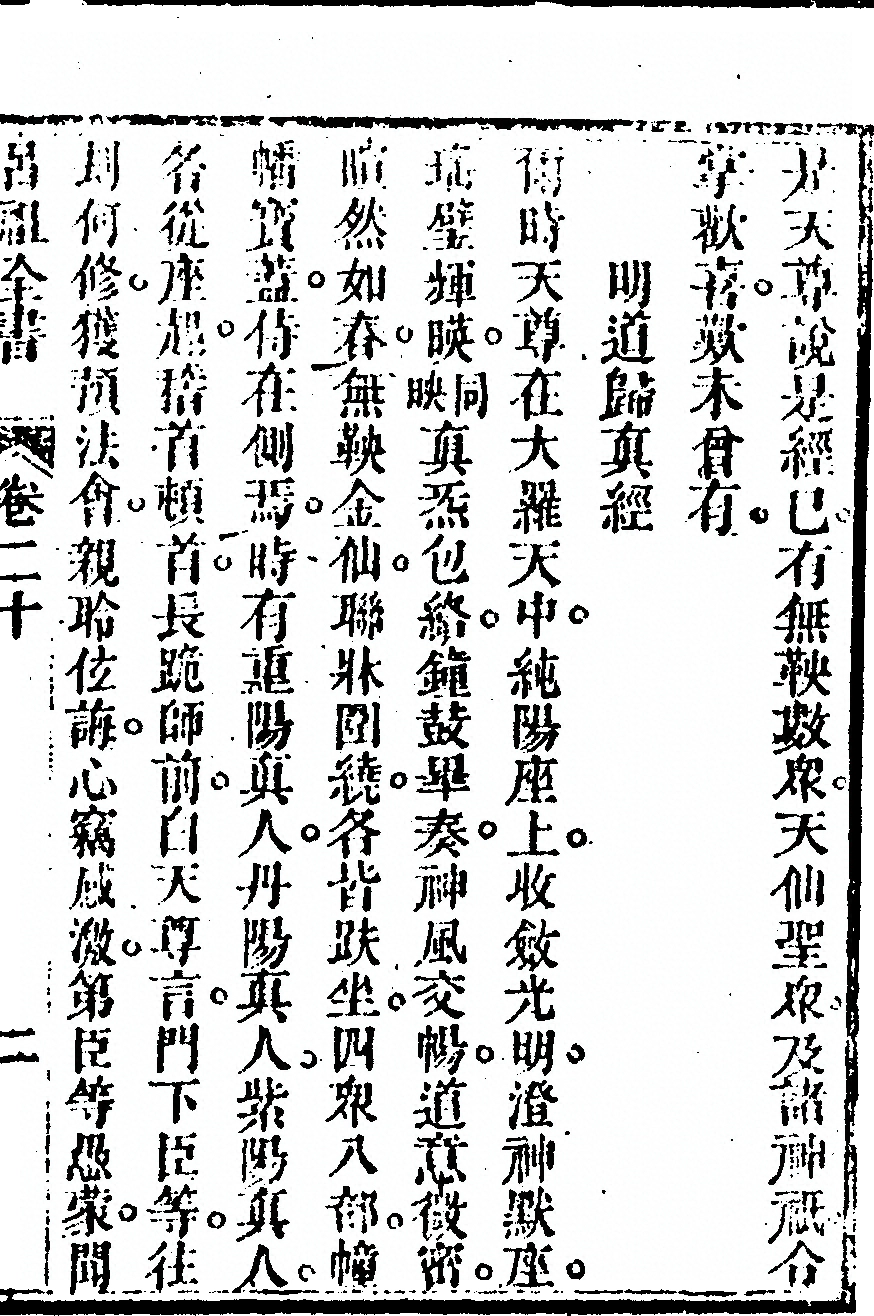 是天尊說是經已有無鞅數眾天仙聖眾及諸神祇合
掌歡喜歎未曾有
明道歸真經
爾時天尊在大羅天中純陽座上收斂光明澄神默座
珖璧輝暎同映真炁包絡鐘鼓畢奏神風交暢道意微密
暄然如春無鞅金仙聯牀圍繞各皆趺坐四眾八部幢
幡寶蓋侍在側焉時有重陽真人丹陽真人紫陽真人
各從座起稽首頓首長跪師前白天尊言門下臣等往
刦何修獲預法會親聆位誨心竊感激第臣等愚蒙聞
呂祖全書 卷二十 二